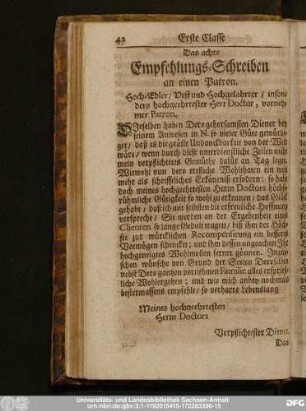 42 Erste Classe
Das achte
Empfehlungs-Schreiben
an einen Patron.
Hoch-Edler / Vest und Hochgelahrter / inson-
ders hochgeehrtester Herr Doctor, vorneh-
mer Patron.
Dieselben haben Dero gehorsamsten Diener bey
seinem Anwesen in N. so vieler Güte gewürdi-
get / daß es die gröste Undanckbarkeit von der Welt
wäre / wenn durch diese unterdienstliche Zeilen nicht
mein verpflichtetes Gemüthe dafür an Tag legte.
Wiewohl nun dero redliche Wohlthaten ein
mehr als schrifftliches Erkäntniß erfodern: so hat
doch meines hochgeehrtesten Herrn Doctors höchst-
rühmliche Gütigkeit so wohl zu erkennen / das Glück
gehabt / daß ich mir selbsten die erfreuliche Hoffnung
verspreche / Sie werden an der Ergebenheit eines
Clienten so lange Geduld tragen / biß ihm der Höch-
ste zur würcklichen Recompensirung ein bessers
Vermögen schencket; und ihm dessen ungeachtet Ihr
hochgeneigtes Wohlwollen fernerr gönnen.
wünsche von Grund der Seelen Denselben
nebst Dero gantzen vornehmen Familie alles ersprieß-
liche Wohlergehen; und wie mich andey nochmals
bestermassens empfehle: so verharre Lebenslang
Meines hochgeehrtesten
Herrn Doctors
Verpflichtester Diener.
Das
Universitäts- und Landesbibliothek Sachsen-Anhalt
urn:nbn:de:gbv:3:1-1192015415-172283396-15
DFG